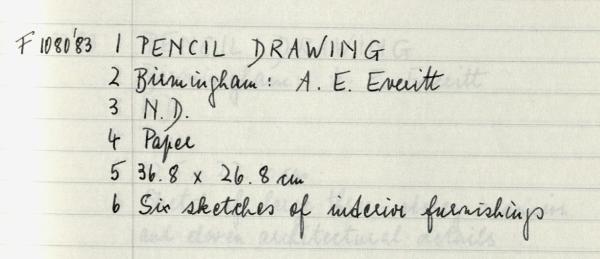 F1080'83 1 PENCIL DRAWING
2 Birmingham: A. E. Everitt
3 N.D.
4 Paper
5 36.8 x 26.8 cm
6 Six sketches of interior furnishings